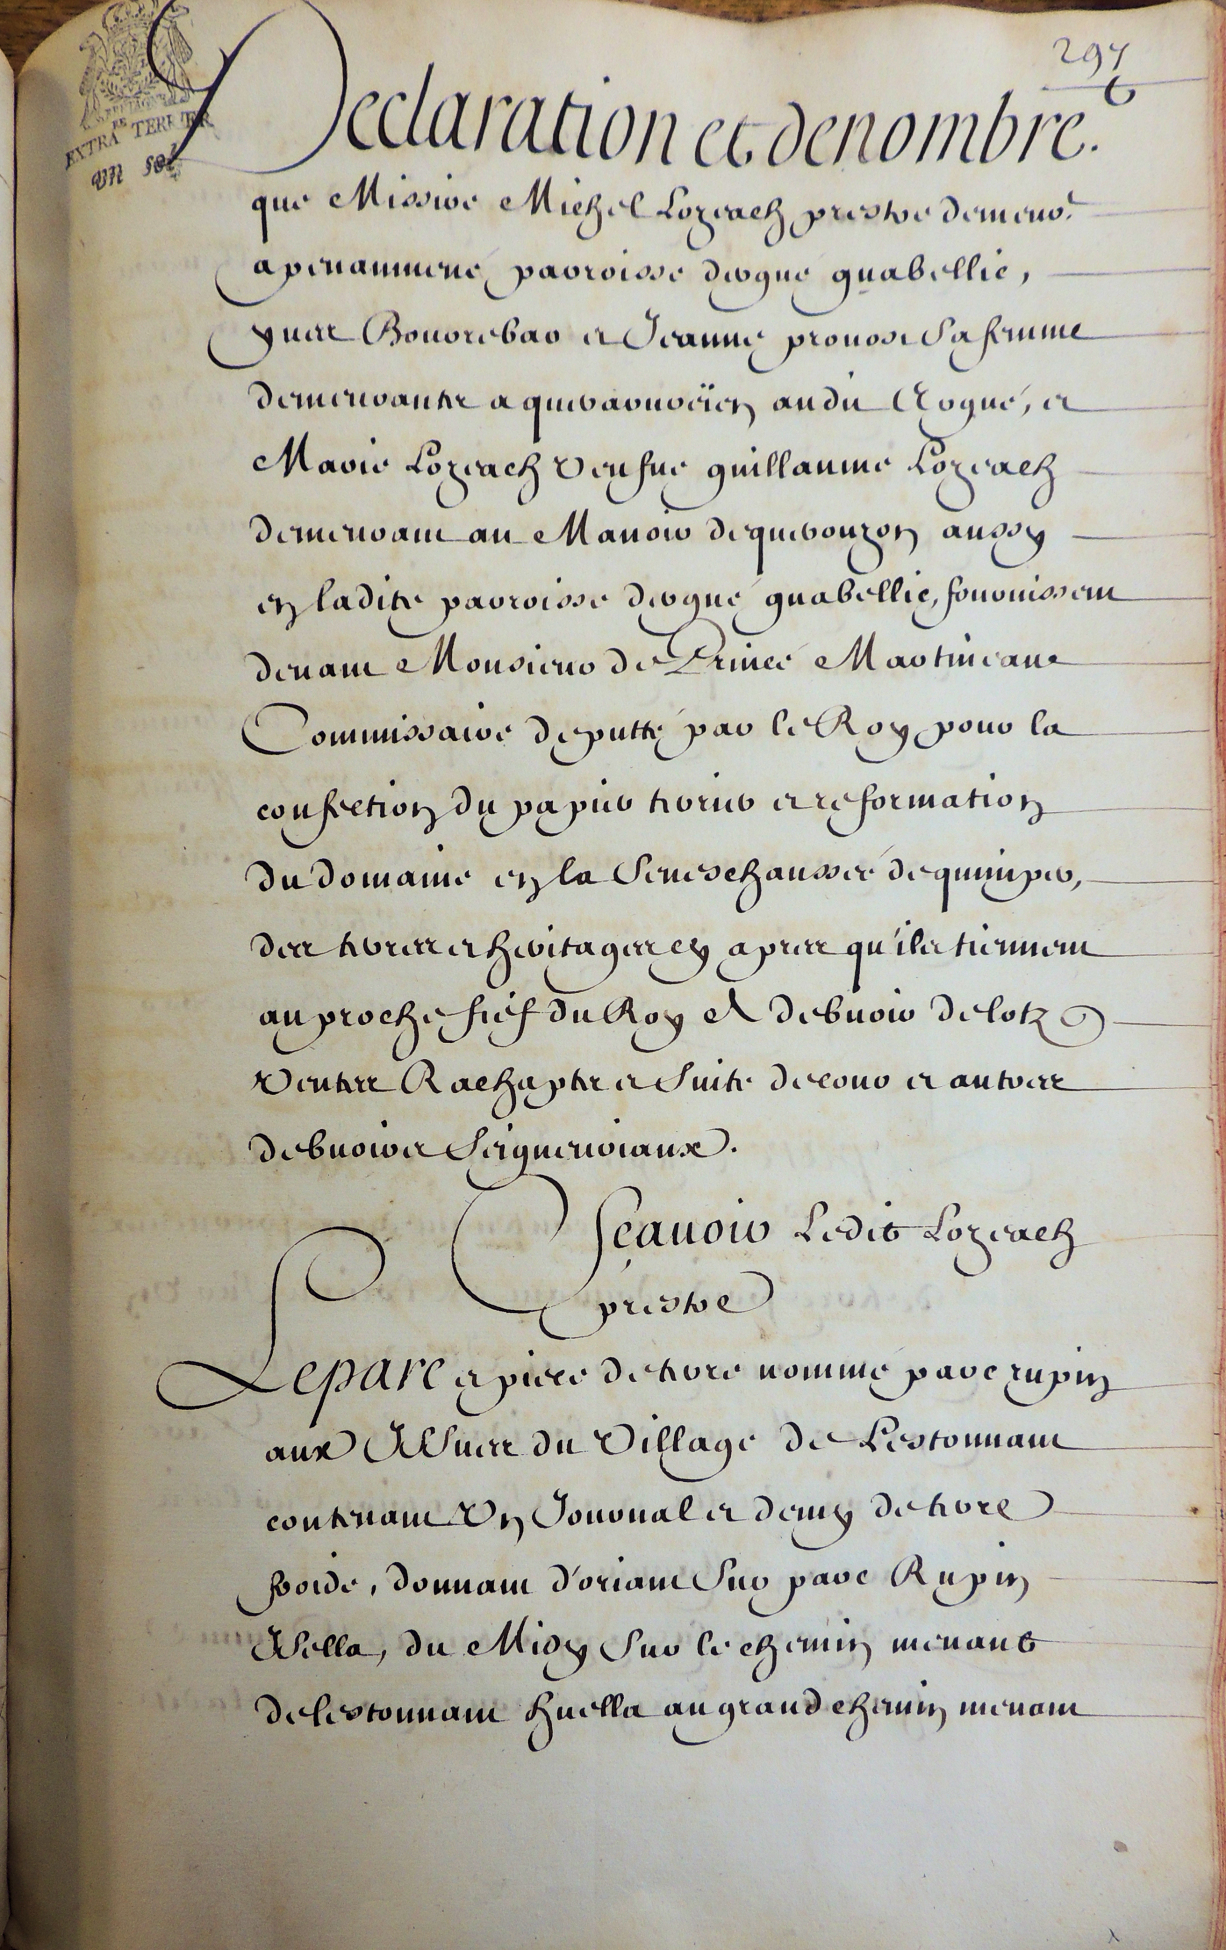 297
EXTRA TERRIER
un sol
Declaration et denombre.t
que Missire Michel Lozeach prestre demeur.t
a penanmené, parroisse dergué gnabellic,
yves Bourebao et Jeanne prouost sa femme
demeurantz a querarouvéien audit Ergué, et
Marie Lozeach veufue guillaume Lozeach
demeurant au Manoir de querouzon aussy
en ladite parroisse dergué gnabellic, fournissent
deuant Monsieur de Princé Martineau
Commissaire deputté par le Roy pour la
confection du papier terrier et reformation
du domaine en la Seneschaussée de quimper,
des terres et heritages cy apres qu'ils tiennent
au proche fief du Roy et debuoir de lotz
ventes Rachaptz et Suite de cour et autres
debuoirs Seigneuriaux.
Sçauoir Ledit Lozeach
prestre
Le parc et piece de terre nommé parc rupin
aux Issues du Village de Lestonnant
contenant Un Journal et demy de terre
froide, donnant d'oriant Sur parc Rupin
Isella, du Midy Sur le chemin menant
de lestonnant huella au grand chemin menant